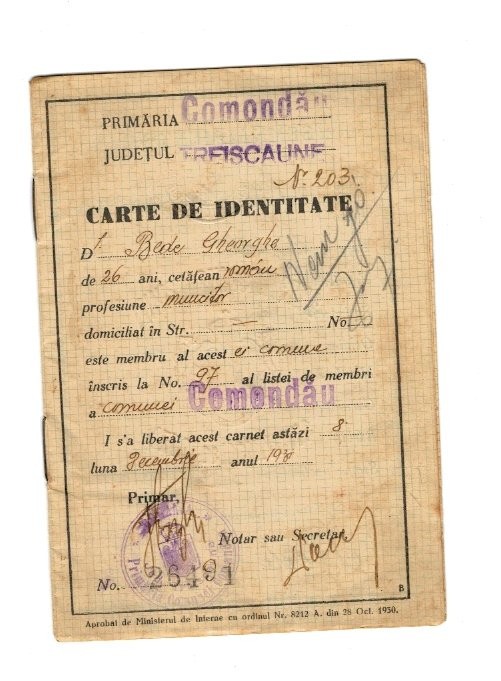 PRIMĂRIA Comondău
JUDEŢUL TREISCAUNE
No. 203.
CARTE DE IDENTITATE
Dl. Bede Gheorghe
de 26 ani, cetăţean român
profesiune muncitor
domiciliat în Str. — No.
este membru al acest ei comune
înscris la No. 97 al listei de membri
a comunei Comondău
I s'a liberat acest carnet astăzi 8
luna Decembrie anul 193
Primar,
Notar sau Secretar,
No. 26491
B
Aprobat de Ministerul de Interne cu ordinul Nr. 8212 A. din 28 Oct. 1930.